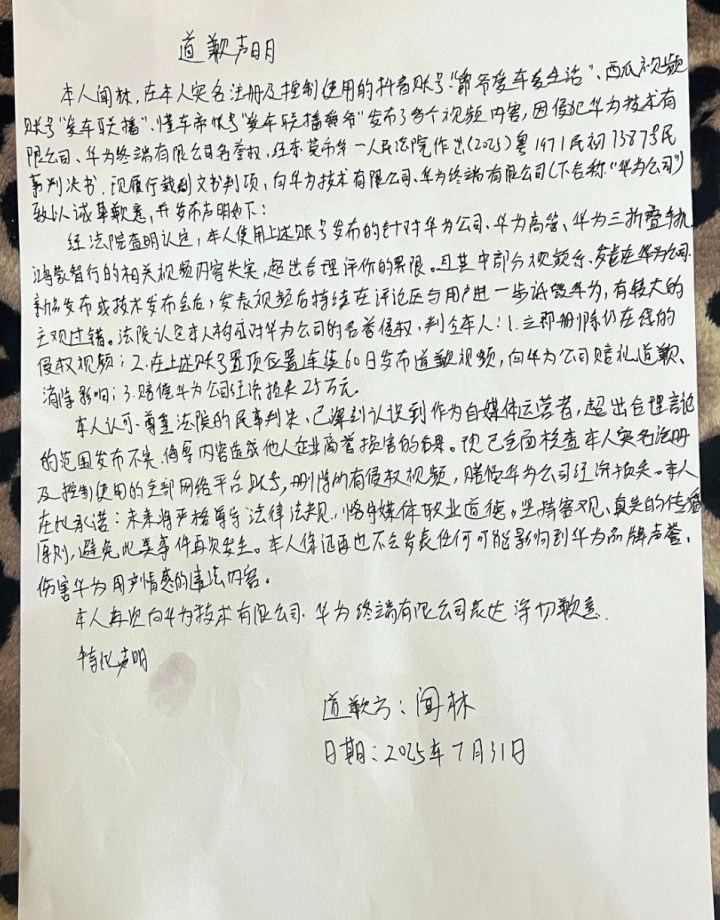 道歉声明
本人闻林，在本人实名注册及控制使用的抖音账号“爵爷爱车爱生活”、西瓜视频
账号“爱车联播”、懂车帝帐号“爱车联播爵爷”发布了多个视频内容，因侵犯华为技术有
限公司、华为终端有限公司名誉权，经东莞市第一人民法院作出(2025)粤1971民初13873号民
事判决书，现履行裁判文书判项，向华为技术有限公司、华为终端有限公司(下合称“华为公司”)
致以诚挚歉意，并发布声明如下：
经法院查明认定，本人使用上述账号发布的针对华为公司、华为高管、华为三折叠手机、
鸿蒙智行的相关视频内容失实，超出合理评价的界限。且其中部分视频系发售在华为公司
新品发布或技术发布会后，发表视频后持续在评论区与用户进一步诋毁华为，有较大的
主观过错。法院认定本人构成对华为公司的名誉侵权，判令本人：1.立即删除仍在线的
侵权视频；2.在上述账号置顶位置连续60日发布道歉视频，向华为公司赔礼道歉、
消除影响；3.赔偿华为公司经济损失25万元。
本人认可、尊重法院的民事判决，已深刻认识到作为自媒体运营者，超出合理言论
的范围发布不实、侮辱内容造成他人企业商誉损害的后果。现已全面检查本人实名注册
及控制使用的全部网络平台账号，删除所有侵权视频，赔偿华为公司经济损失。本人
在此承诺：未来将严格遵守法律法规，恪守媒体职业道德。坚持客观、真实的传播
原则，避免此类事件再次发生。本人保证再也不会发表任何可能影响到华为品牌声誉、
伤害华为用户情感的违法内容。
本人再次向华为技术有限公司、华为终端有限公司表达深切歉意。
特此声明
道歉方：闻林
日期：2025年7月31日